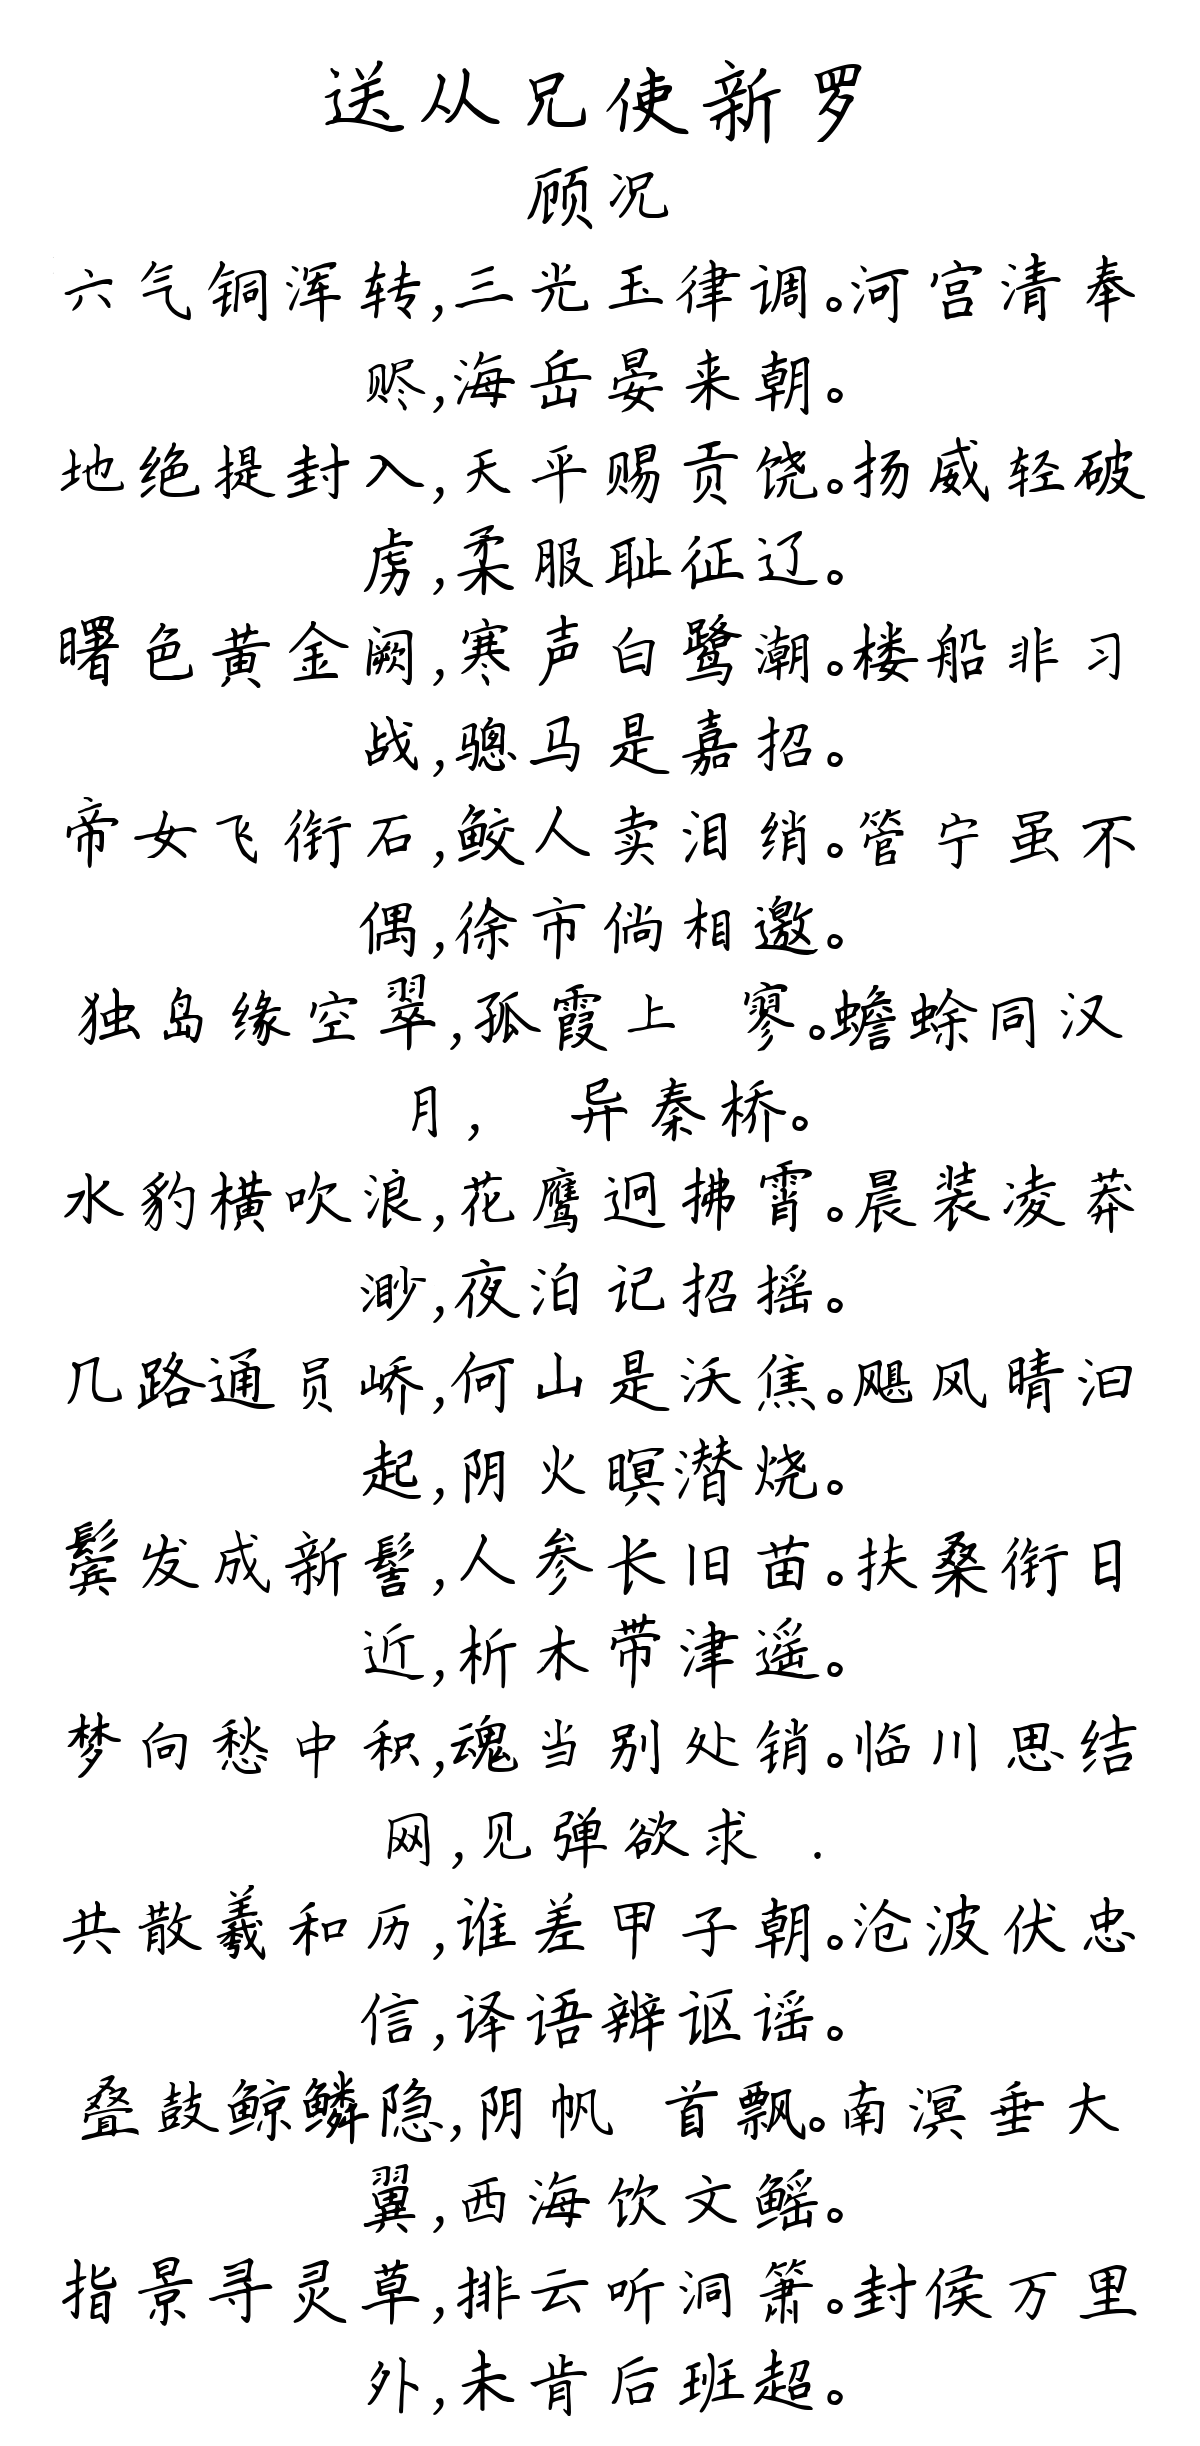 送从兄使新罗
顾况
六气铜浑转,三光玉律调。河宫清奉
赆,海岳晏来朝。
地绝提封入,天平赐贡饶。扬威轻破
虏,柔服耻征辽。
曙色黄金阙,寒声白鹭潮。楼船非习
战,骢马是嘉招。
帝女飞衔石,鲛人卖泪绡。管宁虽不
偶,徐市倘相邀。
独岛缘空翠,孤霞上 寥。蟾蜍同汉
月, 异秦桥。
水豹横吹浪,花鹰迥拂霄。晨装凌莽
渺,夜泊记招摇。
几路通员峤,何山是沃焦。飓风晴汩
起,阴火暝潜烧。
鬓发成新髻,人参长旧苗。扶桑衔日
近,析木带津遥。
梦向愁中积,魂当别处销。临川思结
网,见弹欲求 .
共散羲和历,谁差甲子朝。沧波伏忠
信,译语辨讴谣。
叠鼓鲸鳞隐,阴帆 首飘。南溟垂大
翼,西海饮文鳐。
指景寻灵草,排云听洞箫。封侯万里
外,未肯后班超。